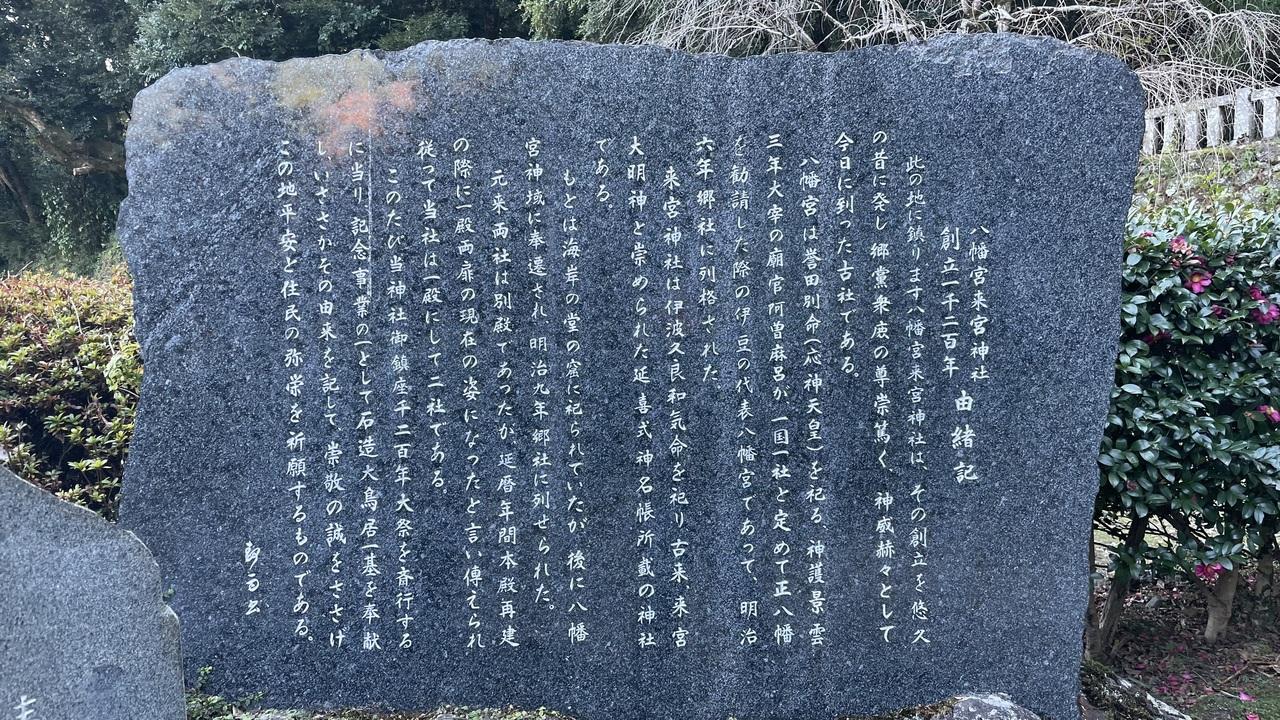 八幡宮来宮神社
創立一千二百年
由緒記
此の地に鎮ります八幡宮来宮神社は、その創立を悠久
の昔に発し郷党衆庶の尊崇篤く、神威赫々として
今日に到った古社である。
八幡宮は誉田別命(応神天皇)を祀る、神護景雲
三年大宰の廟官阿曽麻呂が一国一社と定めて正八幡
を勧請した際の伊豆の代表八幡宮であって、明治
六年郷社に列格された
来宮神社は伊波久良和気命を祀り古来、来宮
大明神と崇められた延喜式神名帳所載の神社
である。
もとは海岸の堂の窟に祀られていたが後に八幡
宮神域に奉遷され明治九年郷社に列せられた。
元来両社は別殿であったが延暦年間本殿再建
の際に一殿両扉の現在の姿になったと言い傳えられ
従って当社は一殿にして二社である。
このたび当神社御鎮座千二百年大祭を斎行する
に当り記念事業の一として石造大鳥居一基を奉献
し、いささかその由来を記して、崇敬の誠をささげ
この地平安と住民の弥栄を祈願するものである。